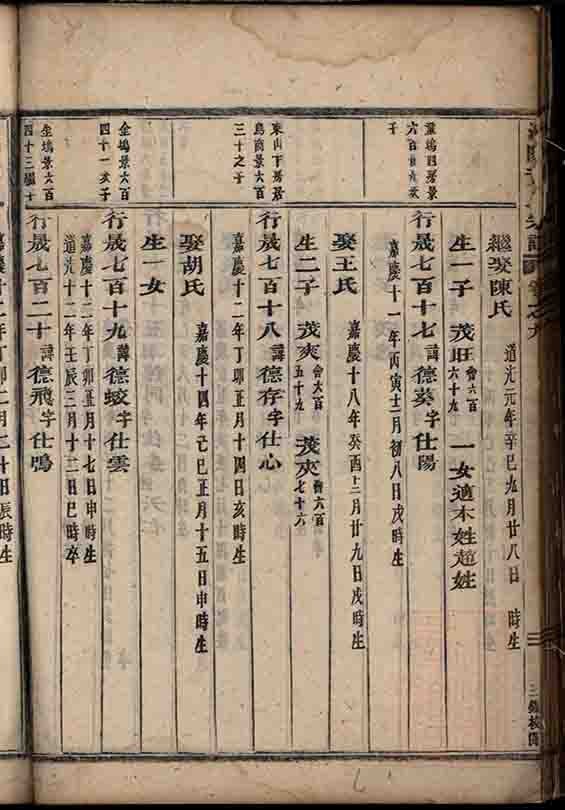 繼娶陳氏 道光元年辛巳九月廿八日 時生
生一子 茂旺會六百六十九 一女適本姓趙姓
行晟七百十七諱德葵字仕陽
嘉慶十一年丙寅十二月初八日戌時生
娶王氏 嘉慶十八年癸酉十二月廿九日戌時生
東山下房君
烏商景六百
三十之子
生二子 茂爽會六百五十九 茂夾會六百七十六
行晟七百十八諱德存字仕心
嘉慶十二年丁卯正月十四日亥時生
娶胡氏 嘉慶十四年己巳正月十五日申時生
生一女
金塢景六百
四十一次子
行晟七百十九諱德蛟字仕雲
嘉慶十二年丁卯正月十七日申時生
道光十二年壬辰三月十二日巳時卒
金塢景六百
四十三
行晟七百二十諱德飛字仕鴞
嘉慶十二年丁卯二月二十日辰時生